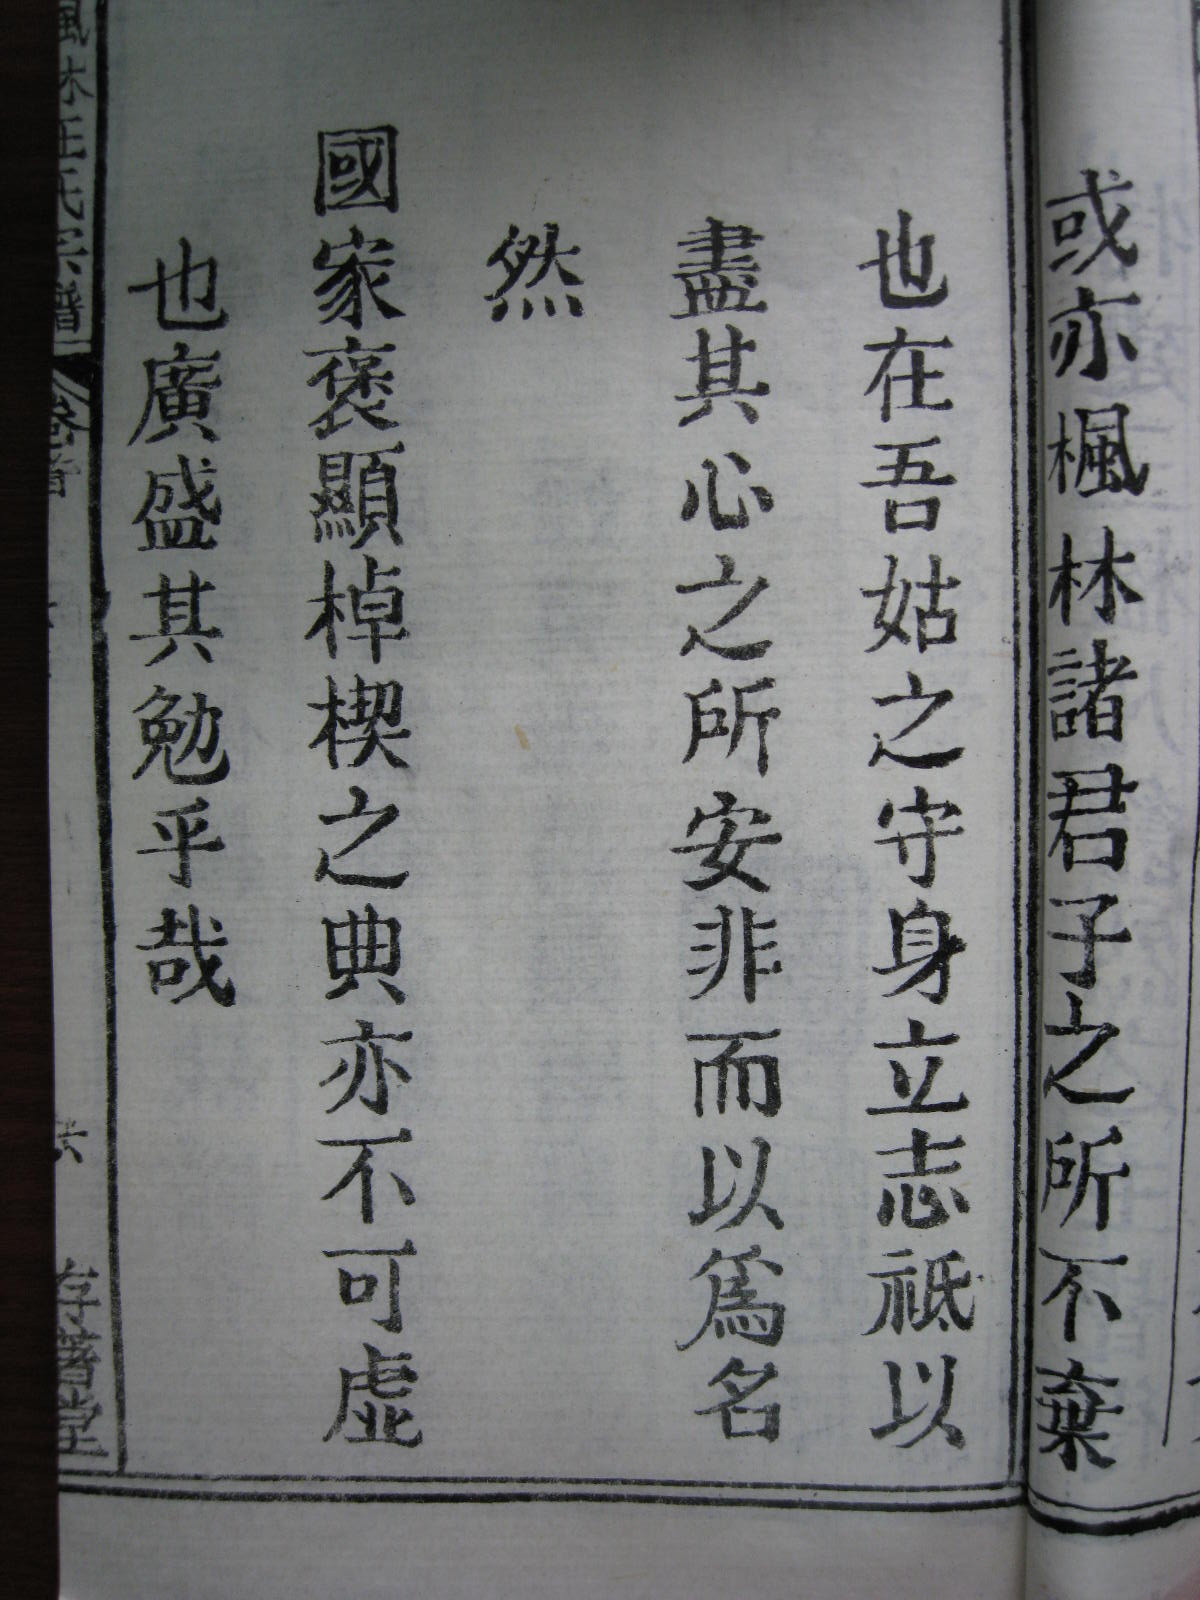 或亦楓林諸君子之所不棄
也在吾姑之守身立志祗以
盡其心之所安非而以爲名
然
國家褒顯棹楔之典亦不可虛
也廣盛其勉乎哉
楓林王氏宗譜
卷首
存著堂